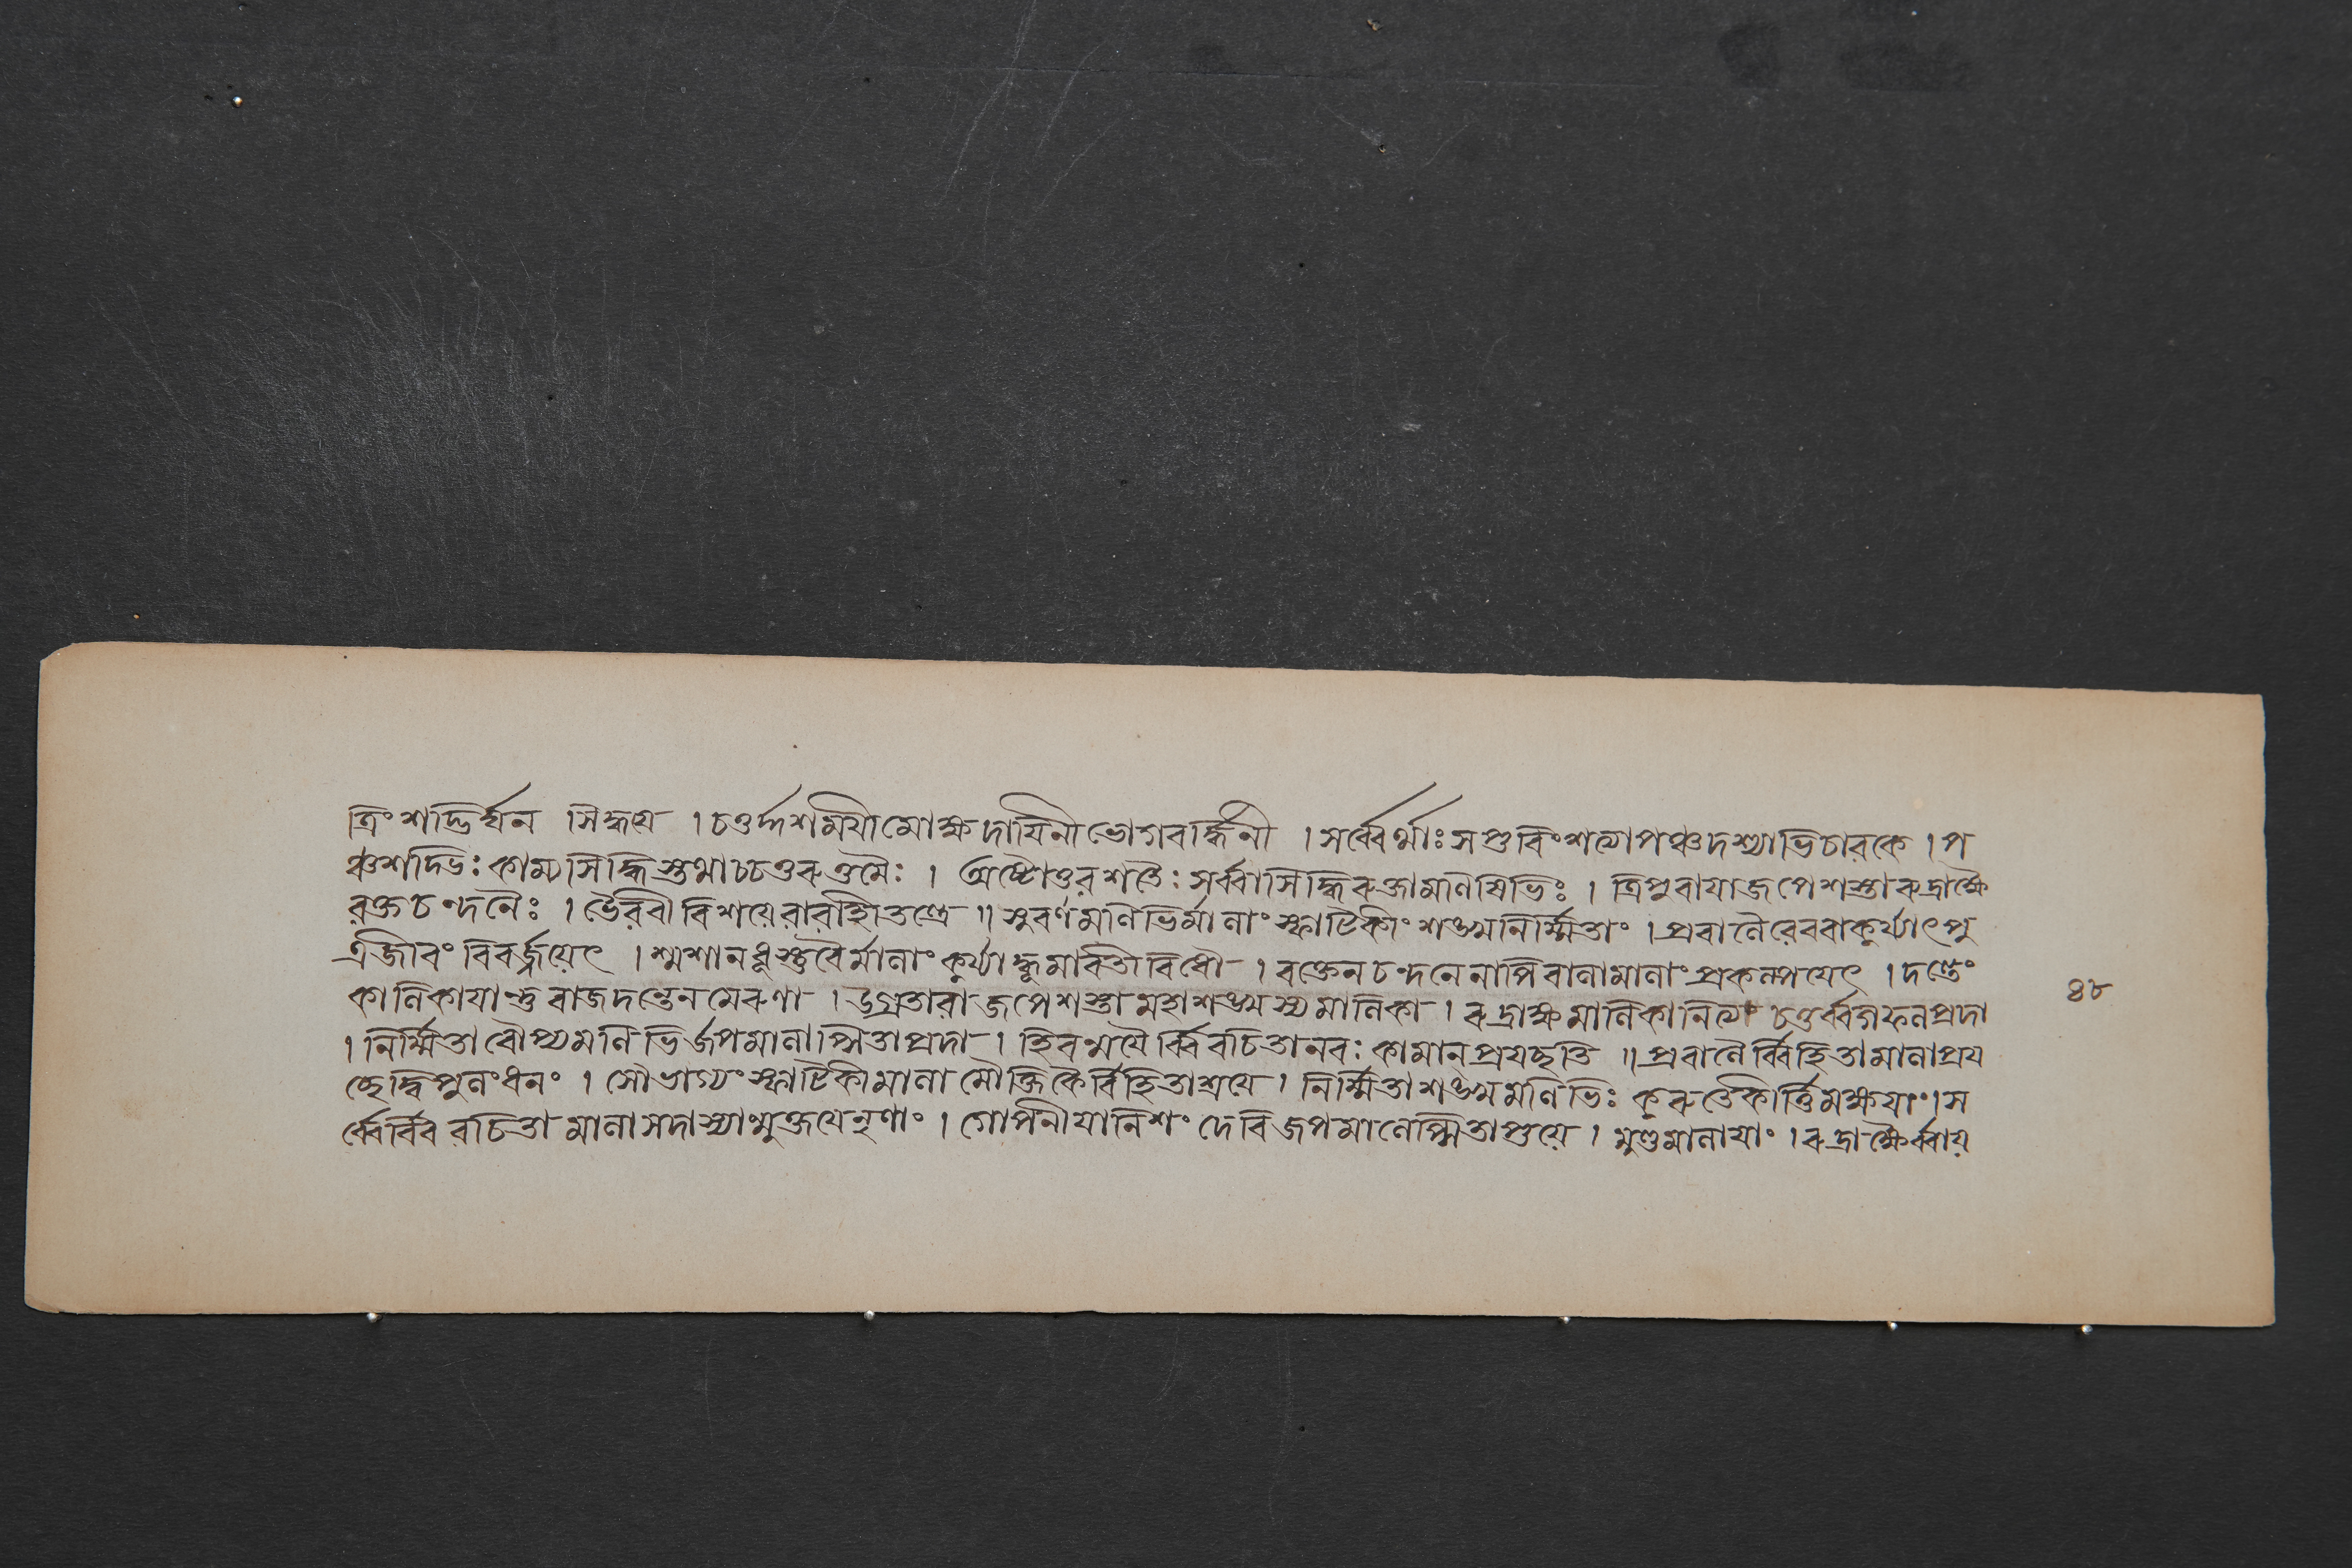 ত্রিংশদ্ভির্ধন সিদ্ধয়ে । চতুর্দ্দশময়ী মোক্ষদায়িনী ভোগবর্দ্ধিনী । সর্ব্বেঽর্থাঃ সপ্তবিংশত্যা পঞ্চদশ্যাভিচারকে । প
ঞ্চশদ্ভিঃ কাম্যসিদ্ধিস্তুথাচ চতুরুত্তমৈঃ । অষ্টোত্তরশতৈঃ সর্ব্বাসিদ্ধিরুক্তামণিষিভিঃ । ত্রিপুরায়াজপেশস্তা রুদ্রাক্ষৈ
রক্তচন্দনৈঃ । ভৈরবী বিশয়ে বারাহীতন্ত্রে ॥ সুবর্ণমণিভির্মালাং স্ফাটিকীং শঙ্খনির্ম্মিতাং । প্রবালৈরেববাকুর্য্যাৎ পু
ত্রজীবং বিবর্জ্জয়েৎ । শ্মশানধুস্তুরৈর্মালাং কুর্য্যাদ্ধূমাবতী বিধৌ । রক্তেনচন্দনেনাপি বালামালাং প্রকল্পয়েৎ । দন্তেং
কালিকায়াস্তু রাজদন্তেন মেরুণা । উগ্রতারাজপেশস্তা মহাশঙ্খস্য মালিকা । রুদ্রাক্ষমালিকানিত্যং চতুর্ব্বর্গফলপ্রদা
। নির্ম্মিতা রৌপ্যমণিভির্জপমালাপ্সিতাপ্রদা । হিরণ্ময়ৈর্ব্বিরচিতানরঃ কামান্ প্রয়চ্ছতি ॥ প্রবালৈর্ব্বিহিতামালা প্রয়
চ্ছেদ্বিপুলংধনং । সৌভাগ্যং স্ফাটিকীমালা মৌক্তিকৈর্বিহিতাশ্রয়ে । নির্ম্মিতা শঙ্খমণিভিঃ কুরুতেকীর্ত্তিমক্ষয়াং । স
র্ব্বৈর্বিরচিতা মালা সদাস্যান্মুক্তয়েনৃণাং । গোপনীয়ানিশং দেবি জপমালেপ্সিতাপ্তয়ে । মুণ্ডমালায়াং । রুদ্রাক্ষৈর্ব্বায়
৪৮